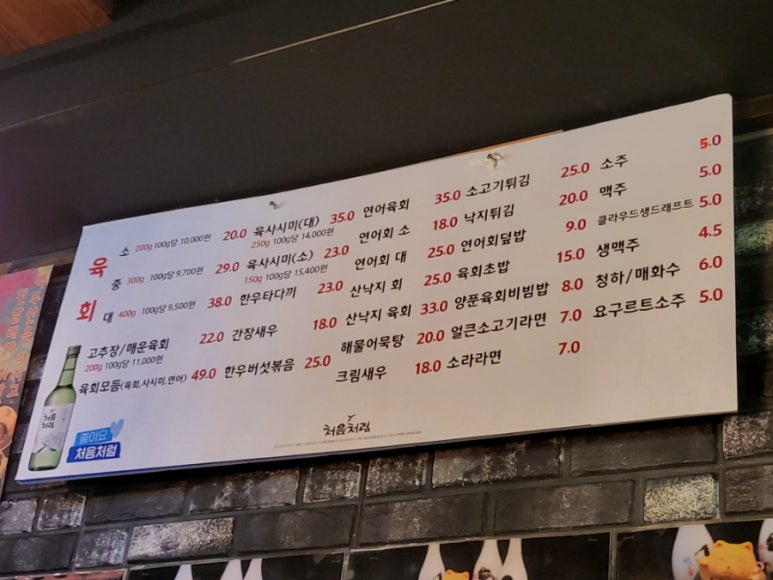 육회
소 200g 100g당 10,000원 20.0
중 300g 100g당 9,700원 29.0
대 400g 100g당 9,500원 38.0
고추장/매운육회 22.0
200g 100g당 11,000원
육회모듬(육회,사시미,연어) 49.0
육사시미(대) 35.0
250g 100g당 14,000원
육사시미(소) 23.0
150g 100g당 15,400원
한우타다끼 23.0
간장새우 18.0
한우버섯볶음 25.0
연어육회 35.0
연어회 소 18.0
연어회 대 25.0
산낙지 회 25.0
산낙지 육회 33.0
해물어묵탕 20.0
크림새우 18.0
소고기튀김 25.0
낙지튀김 20.0
연어회덮밥 9.0
육회초밥 15.0
양푼육회비빔밥 8.0
얼큰소고기라면 7.0
소라라면 7.0
소주 5.0
맥주 5.0
클라우드생드래프트 5.0
생맥주 4.5
청하/매화수 6.0
요구르트소주 5.0
처음처럼
좋아요
처음처럼
처음처럼